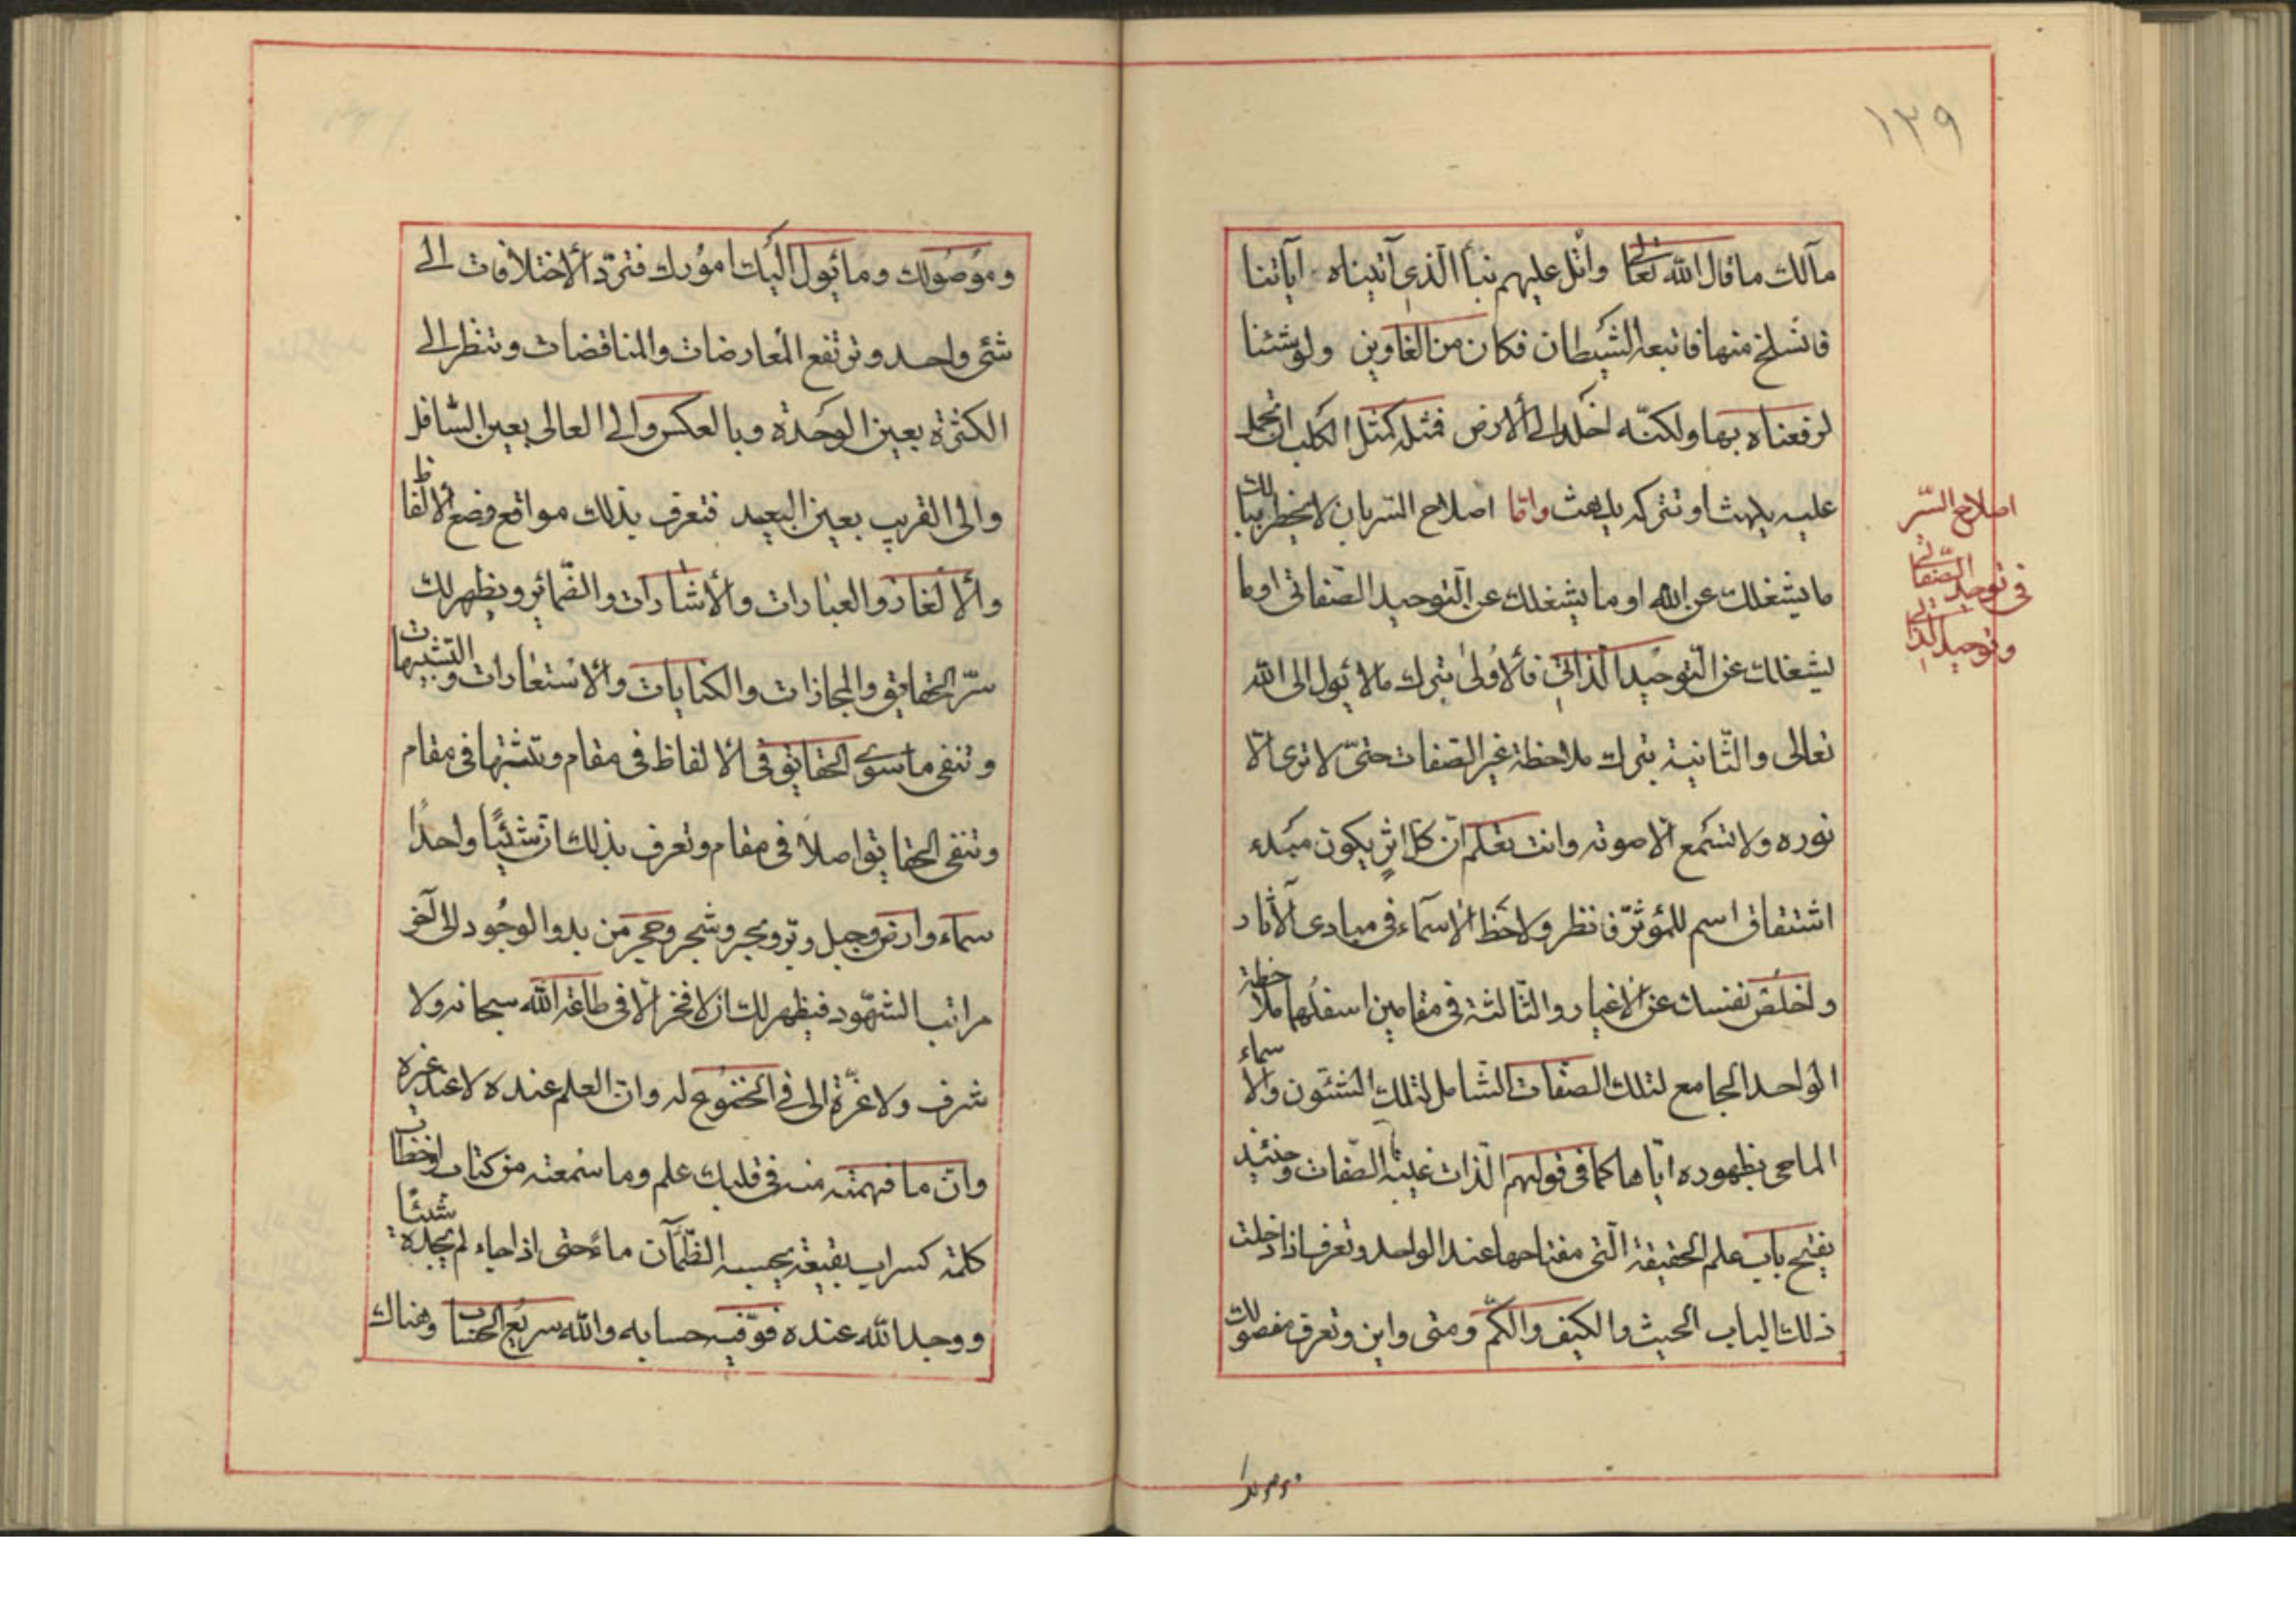 ١٣٩
مآلك ما قال الله تعالى واتل عليهم نبأ الذي آتيناه آياتنا
فانسلخ منها فاتبعه الشيطان فكان من الغاوين ولو شئنا
لرفعناه بها ولكنّه اخلد الى الأرض فمثله كمثل الكلب ان تحمل
عليه يلهث او تتركه يلهث وامّا اصلاح السّر بان لا يخطر ببالك
ما يشغلك عن الله او ما يشغلك عن التّوحيد الصّفاتى او ما
يشغلك عن التّوحيد الذّاتى فالأولى بترك ما لا يئول الى الله
تعالى والثّانية بترك ملاحظة غير الصّفات حتىّ لا ترى الّا
نوره ولا تسمع الّا صوته وانت تعلم انّ كلّ اثر يكون مبدء
اشتقاق اسم للمؤثّر فانظر ولاحظ الاسماء فى مبادى الآثار
واخلص نفسك عن الاغيار والثّالثة فى مقامين اسفلها ملاحظة
الواحد الجامع لتلك الصفات الشّامل لتلك الشئون والاسماء
الماحى بظهوره ايّاها كما فى قولهم الذّات غيّبت الصّفات وحنيئذ
يفتح باب علم الحقيقة الّتى مفتاحها عند الواحد وتعرف اذا دخلت
ذلك الباب الحيث والكيف والكمّ ومتى واين وتعرف مفصولك
اصلاح السّر
فى توحيد الصّفاتى
وتوحيد الذاتى
وموصولك
وموصولك وما يئول اليك امورك فتردّ الأختلافات الى
شئ واحد وترتفع المعارضات والمناقضات وتنظر الى
الكثرة بعين الوحدة وبالعكس والى العالى بعين السّافل
والى القريب بعين البعيد فتعرف بذلك مواقع وضع الألفاظ
والألغاز والعبارات والأشارات والضّمائر ويظهر لك
سرّ الحقايق والمجازات والكنايات والأستعارات والتّشبيهات
وتنفى ما سوى الحقايق فى الألفاظ فى مقام وتثبتها فى مقام
وتنفى الحقايق اصلاً فى مقام وتعرف بذلك انّ شيئًا واحدًا
سماء وارض وجبل وبرّ وبحر وشجر وحجر من بدو الوجود الى آخر
مراتب الشهّود فيظهر لك ان لا فخر الّا فى طاعة الله سبحانه ولا
شرف ولا عزّة الى فى الخضوع له وان العلم عنده لا عند غيره
وانّ ما فهمته منه فى قلبك علم وما سمعته من كتاب او خطاب
كلمّه كسراب بقيعة يحسبه الظّمآن ماءً حتى اذا جاء لم يجده شيئًا
ووجد الله عنده فوّفيه حسابه والله سريع الحساب وهناك